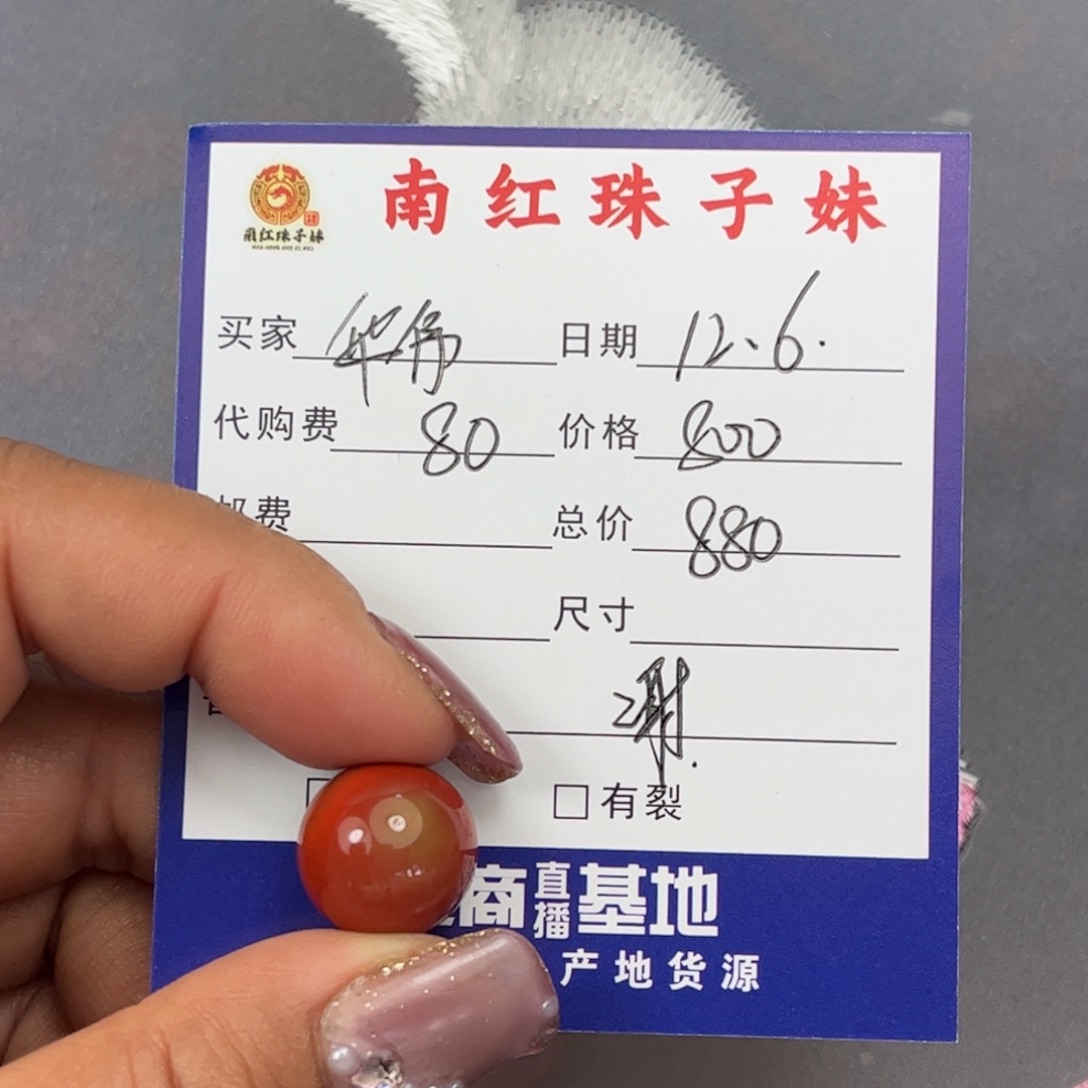 南红珠子妹
南红珠子妹
买家 华伟 日期 12.6.
代购费 80 价格 800
邮费 总价 880
尺寸
谢
□ □有裂
商直播基地
产地货源